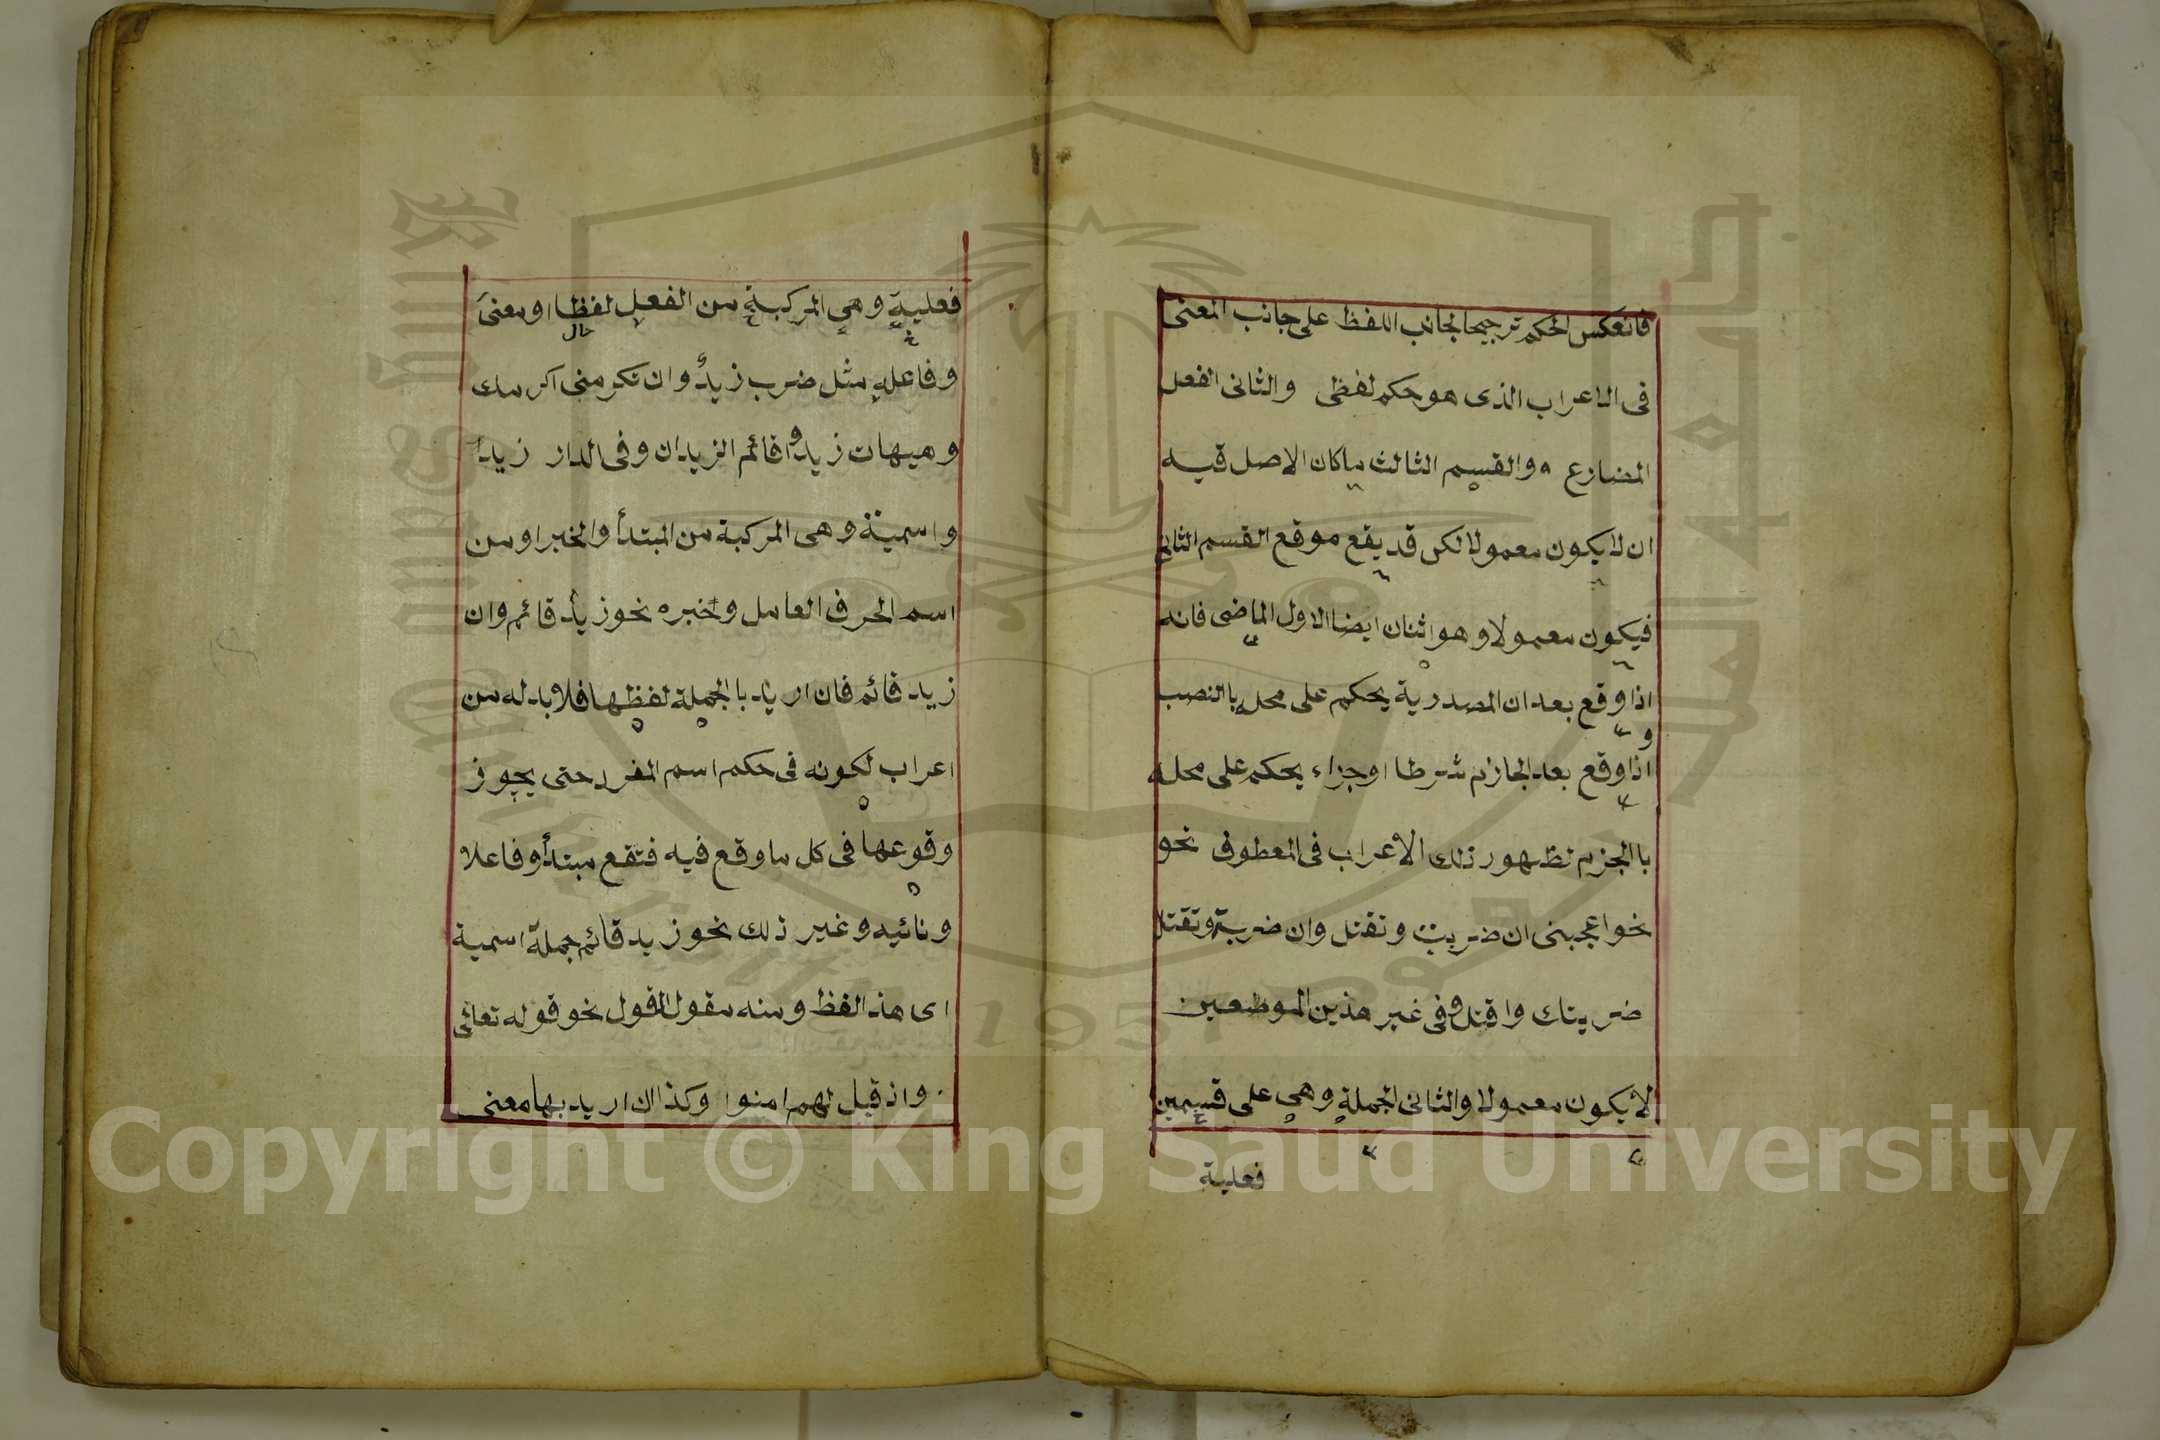 فانعكس الحكم ترجيحا لجانب اللفظ على جانب المعنى
فى الاعراب الذى هو حكم لفظى والثانى الفعل
المضارع والقسم الثالث ماكان الاصل فيه
ان لا يكون معمولا لكن قد يقع موقع القسم الثانى
فيكون معمولا وهو اثنان ايضا الاول الماضى فانه
اذا وقع بعد ان المصدرية يحكم على محله بالنصب
و
اذا وقع بعد الجازم شرطا او جزاء يحكم على محله
بالجزم لظهور ذلك الاعراب فى المعطوف نحو
نحو اعجبنى ان ضربت وتقتل وان ضربت وتقتل
ضربتك واقتل وفى غير هذين الموضعين
لا يكون معمولا والثانى الجملة وهى على قسمين
فعلية
فعلية وهى المركبة من الفعل لفظا او معنى
حال
وفاعله مثل ضرب زيد وان تكرمنى اكرمك
وهيهات زيد و اقائم الزيدان وفى الدار زيد
واسمية وهى المركبة من المبتدأ والخبر او من
اسم الحرف العامل وخبره نحو زيد قائم وان
زيد قائم فان اريد بالجملة لفظها فلا بد له من
اعراب لكونه فى حكم اسم المفرد حتى يجوز
وقوعها فى كل ما وقع فيه فتقع مبتدأ وفاعلا
ونائيه وغير ذلك نحو زيد قائم جملة اسمية
اى هذ الفظ ومنه مقول القول نحو قوله تعالى
واذ قيل لهم امنوا وكذا ان اريد بها معنى
Copyright © King Saud University
King Saud University
1957